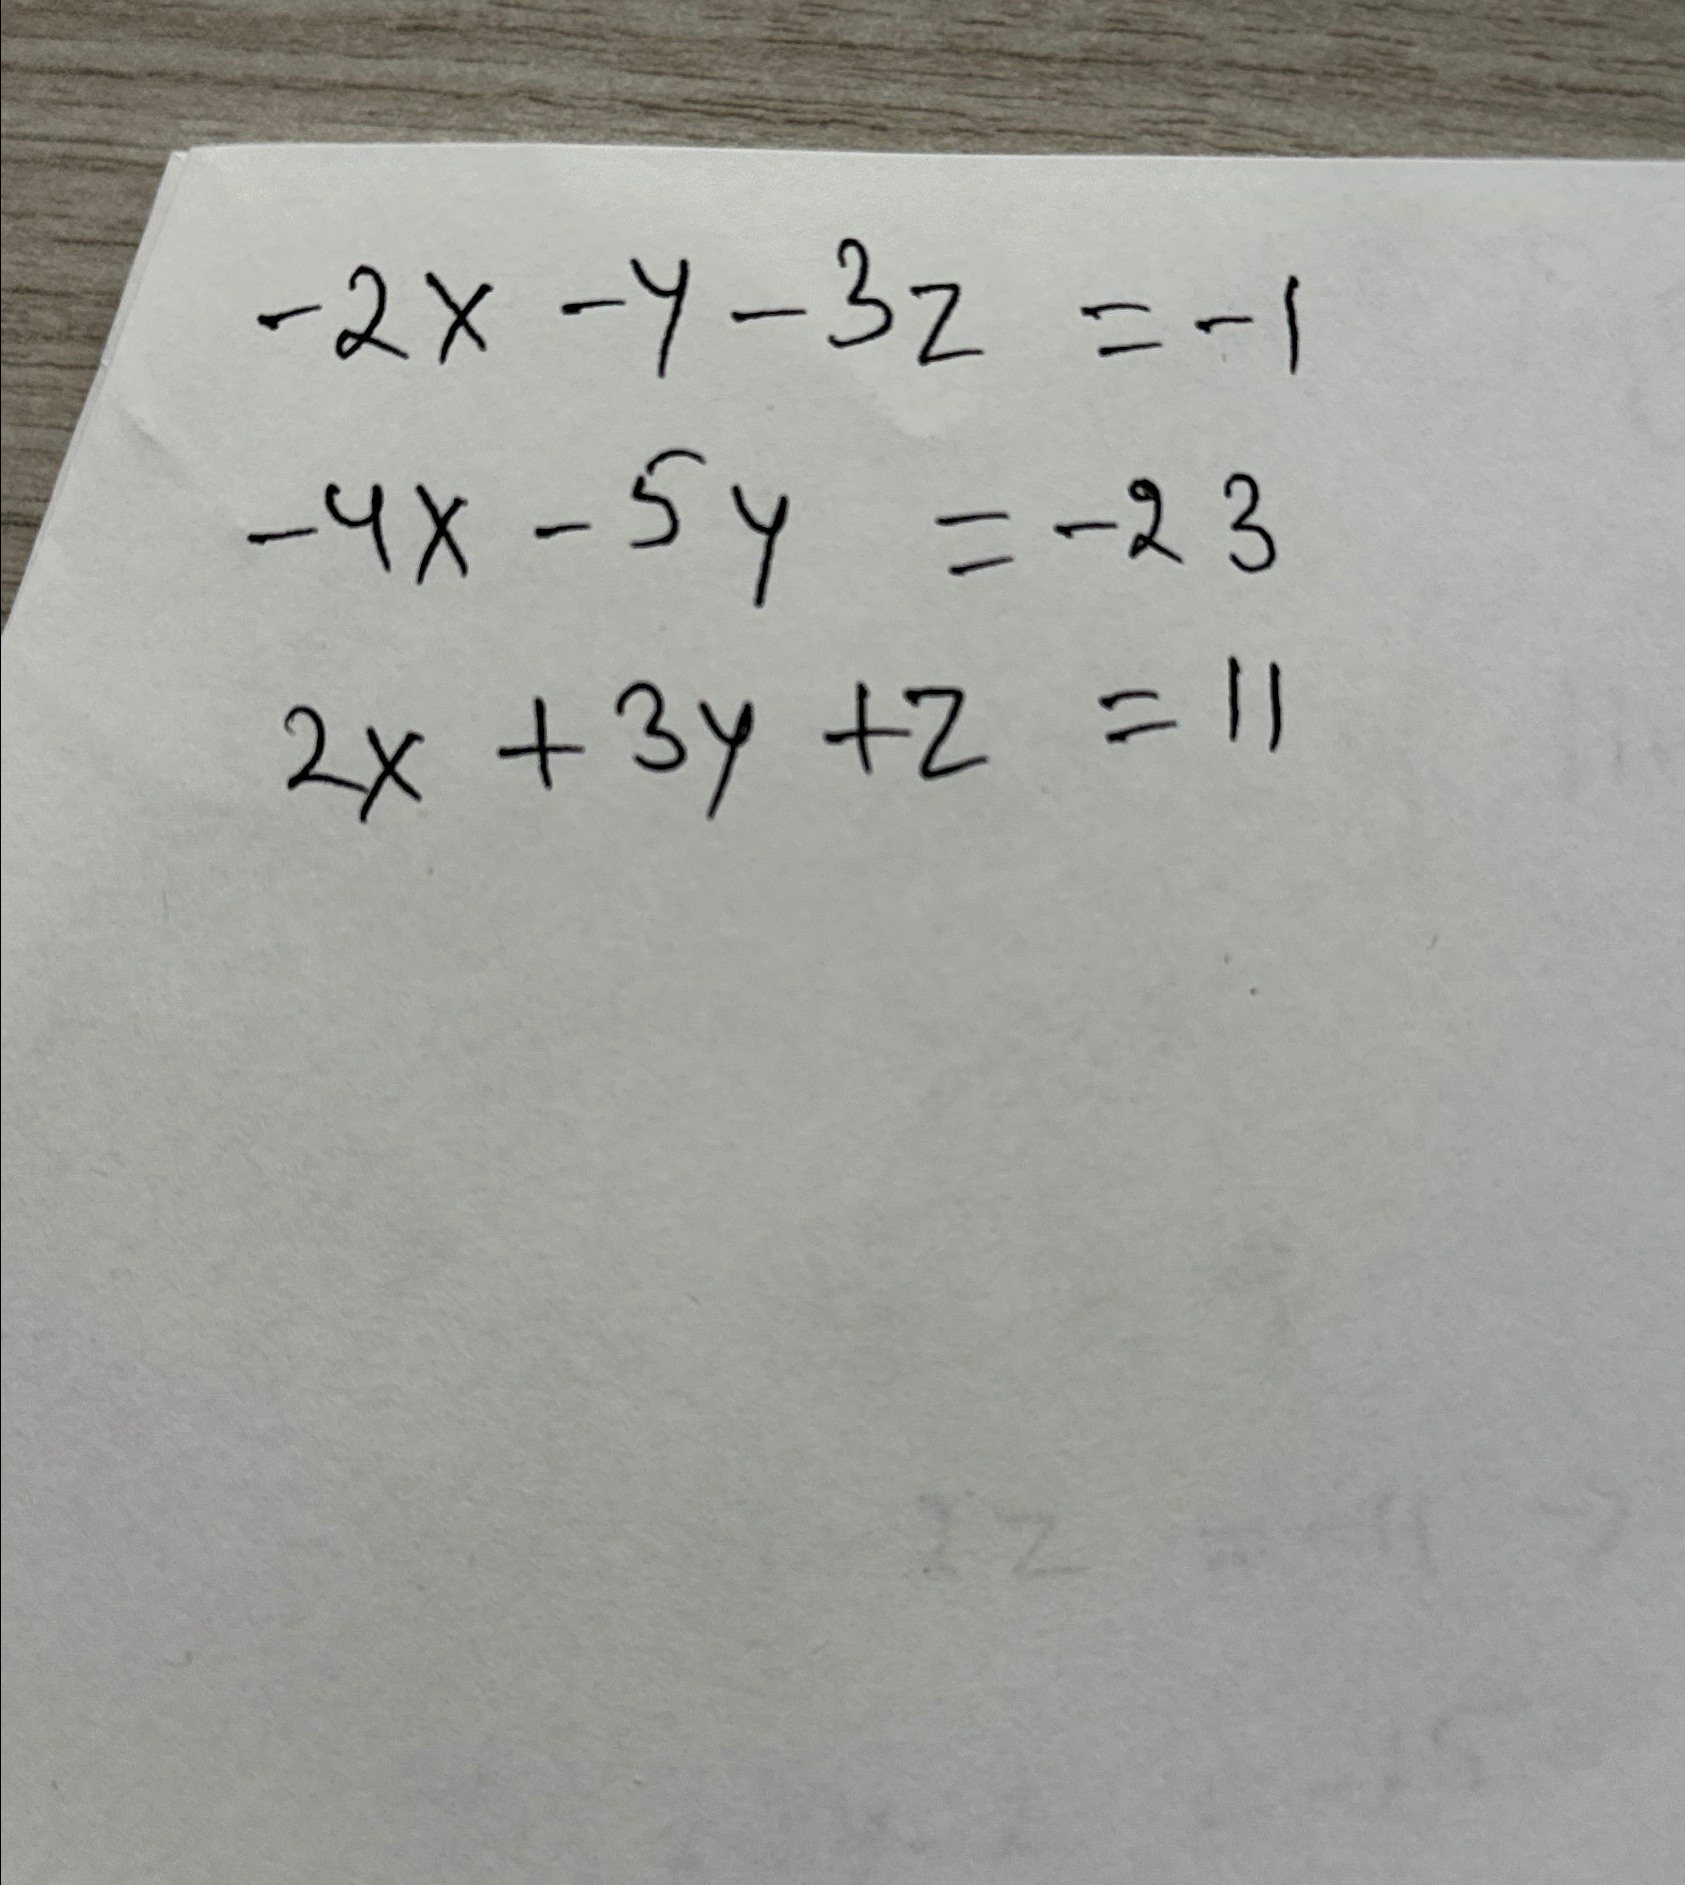 -2x - y - 3z = -1
-4x - 5y = -23
2x + 3y + z = 11